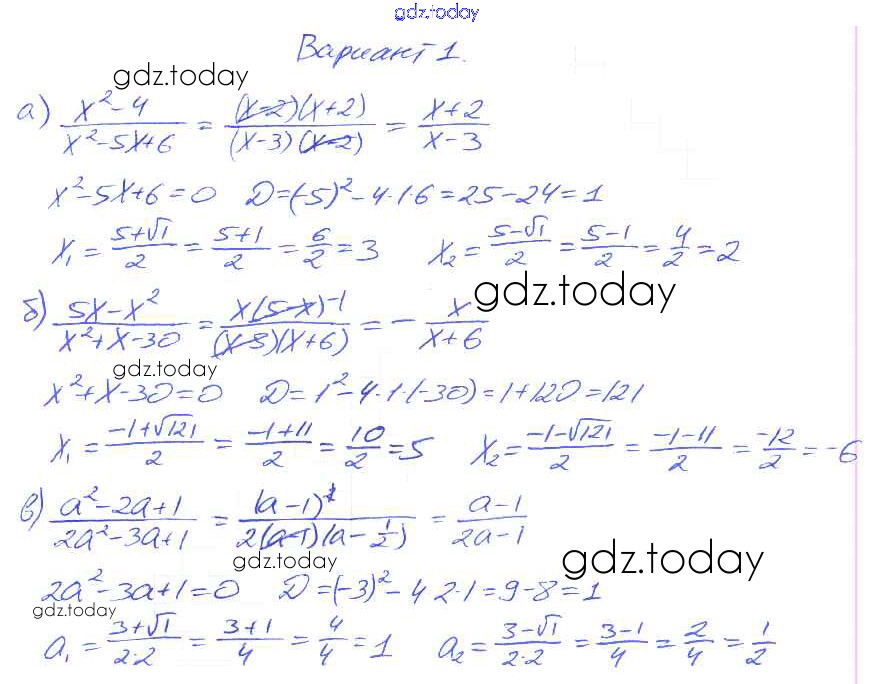 gdz.today
Вариант 1.
gdz.today
а) (x²-4)/(x²-5x+6) = ((x-2)(x+2))/((x-3)(x-2)) = (x+2)/(x-3)
x²-5x+6=0 D=(-5)²-4·1·6=25-24=1
x₁ = (5+√1)/2 = (5+1)/2 = 6/2 = 3 x₂ = (5-√1)/2 = (5-1)/2 = 4/2 = 2
gdz.today
б) (5x-x²)/(x²+x-30) = (x(5-x)⁻¹)/((x-5)(x+6)) = - x/(x+6)
gdz.today
x²+x-30=0 D=1²-4·1·(-30)=1+120=121
x₁ = (-1+√121)/2 = (-1+11)/2 = 10/2 = 5 x₂ = (-1-√121)/2 = (-1-11)/2 = -12/2 = -6
в) (a²-2a+1)/(2a²-3a+1) = (a-1)²/(2(a-1)(a-1/2)) = (a-1)/(2a-1)
gdz.today
gdz.today
2a²-3a+1=0 D=(-3)²-4·2·1=9-8=1
gdz.today
a₁ = (3+√1)/(2·2) = (3+1)/4 = 4/4 = 1 a₂ = (3-√1)/(2·2) = (3-1)/4 = 2/4 = 1/2